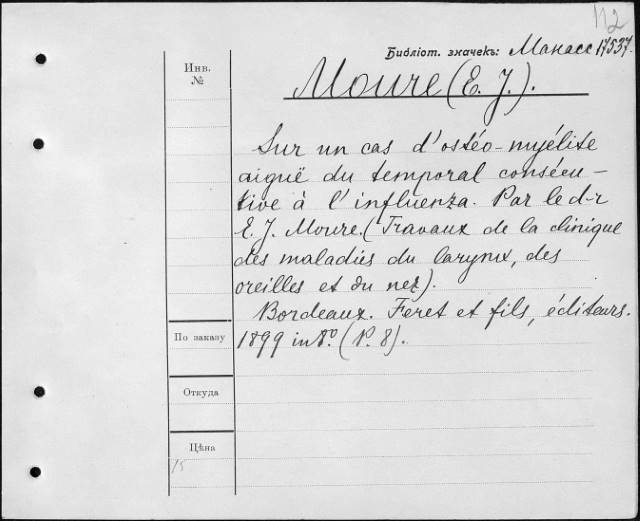 112
Библіот. значекъ: Манасс 17537.
Инв.
№
Moure (E. J.).
Sur un cas d'ostéo-myélite
aiguë du temporal consécu-
tive à l'influenza. Par le d-r
E. J. Moure. (Travaux de la clinique
des maladies du larynx, des
oreilles et du nez).
Bordeaux. Feret et fils, éditeurs.
По заказу
1899 in 8.º (P. 8).
Откуда
Цѣна
15